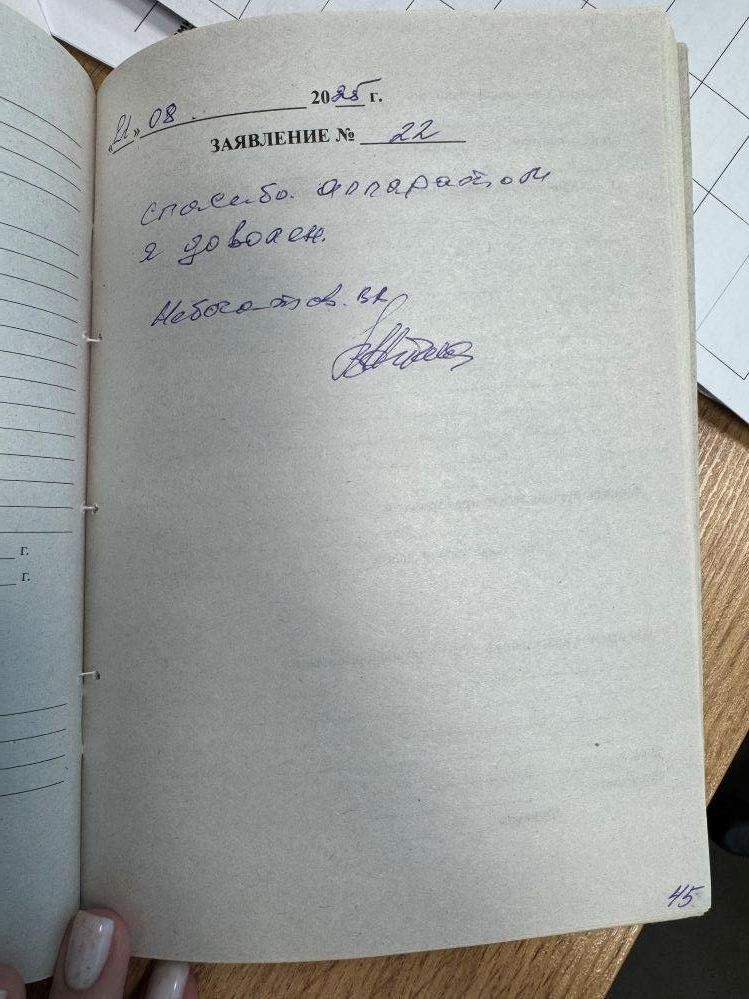 «21» 08. 2025 г.
ЗАЯВЛЕНИЕ № 22
спасибо. аппаратом
я доволен.
Небогатов. ВА
г.
г.
45